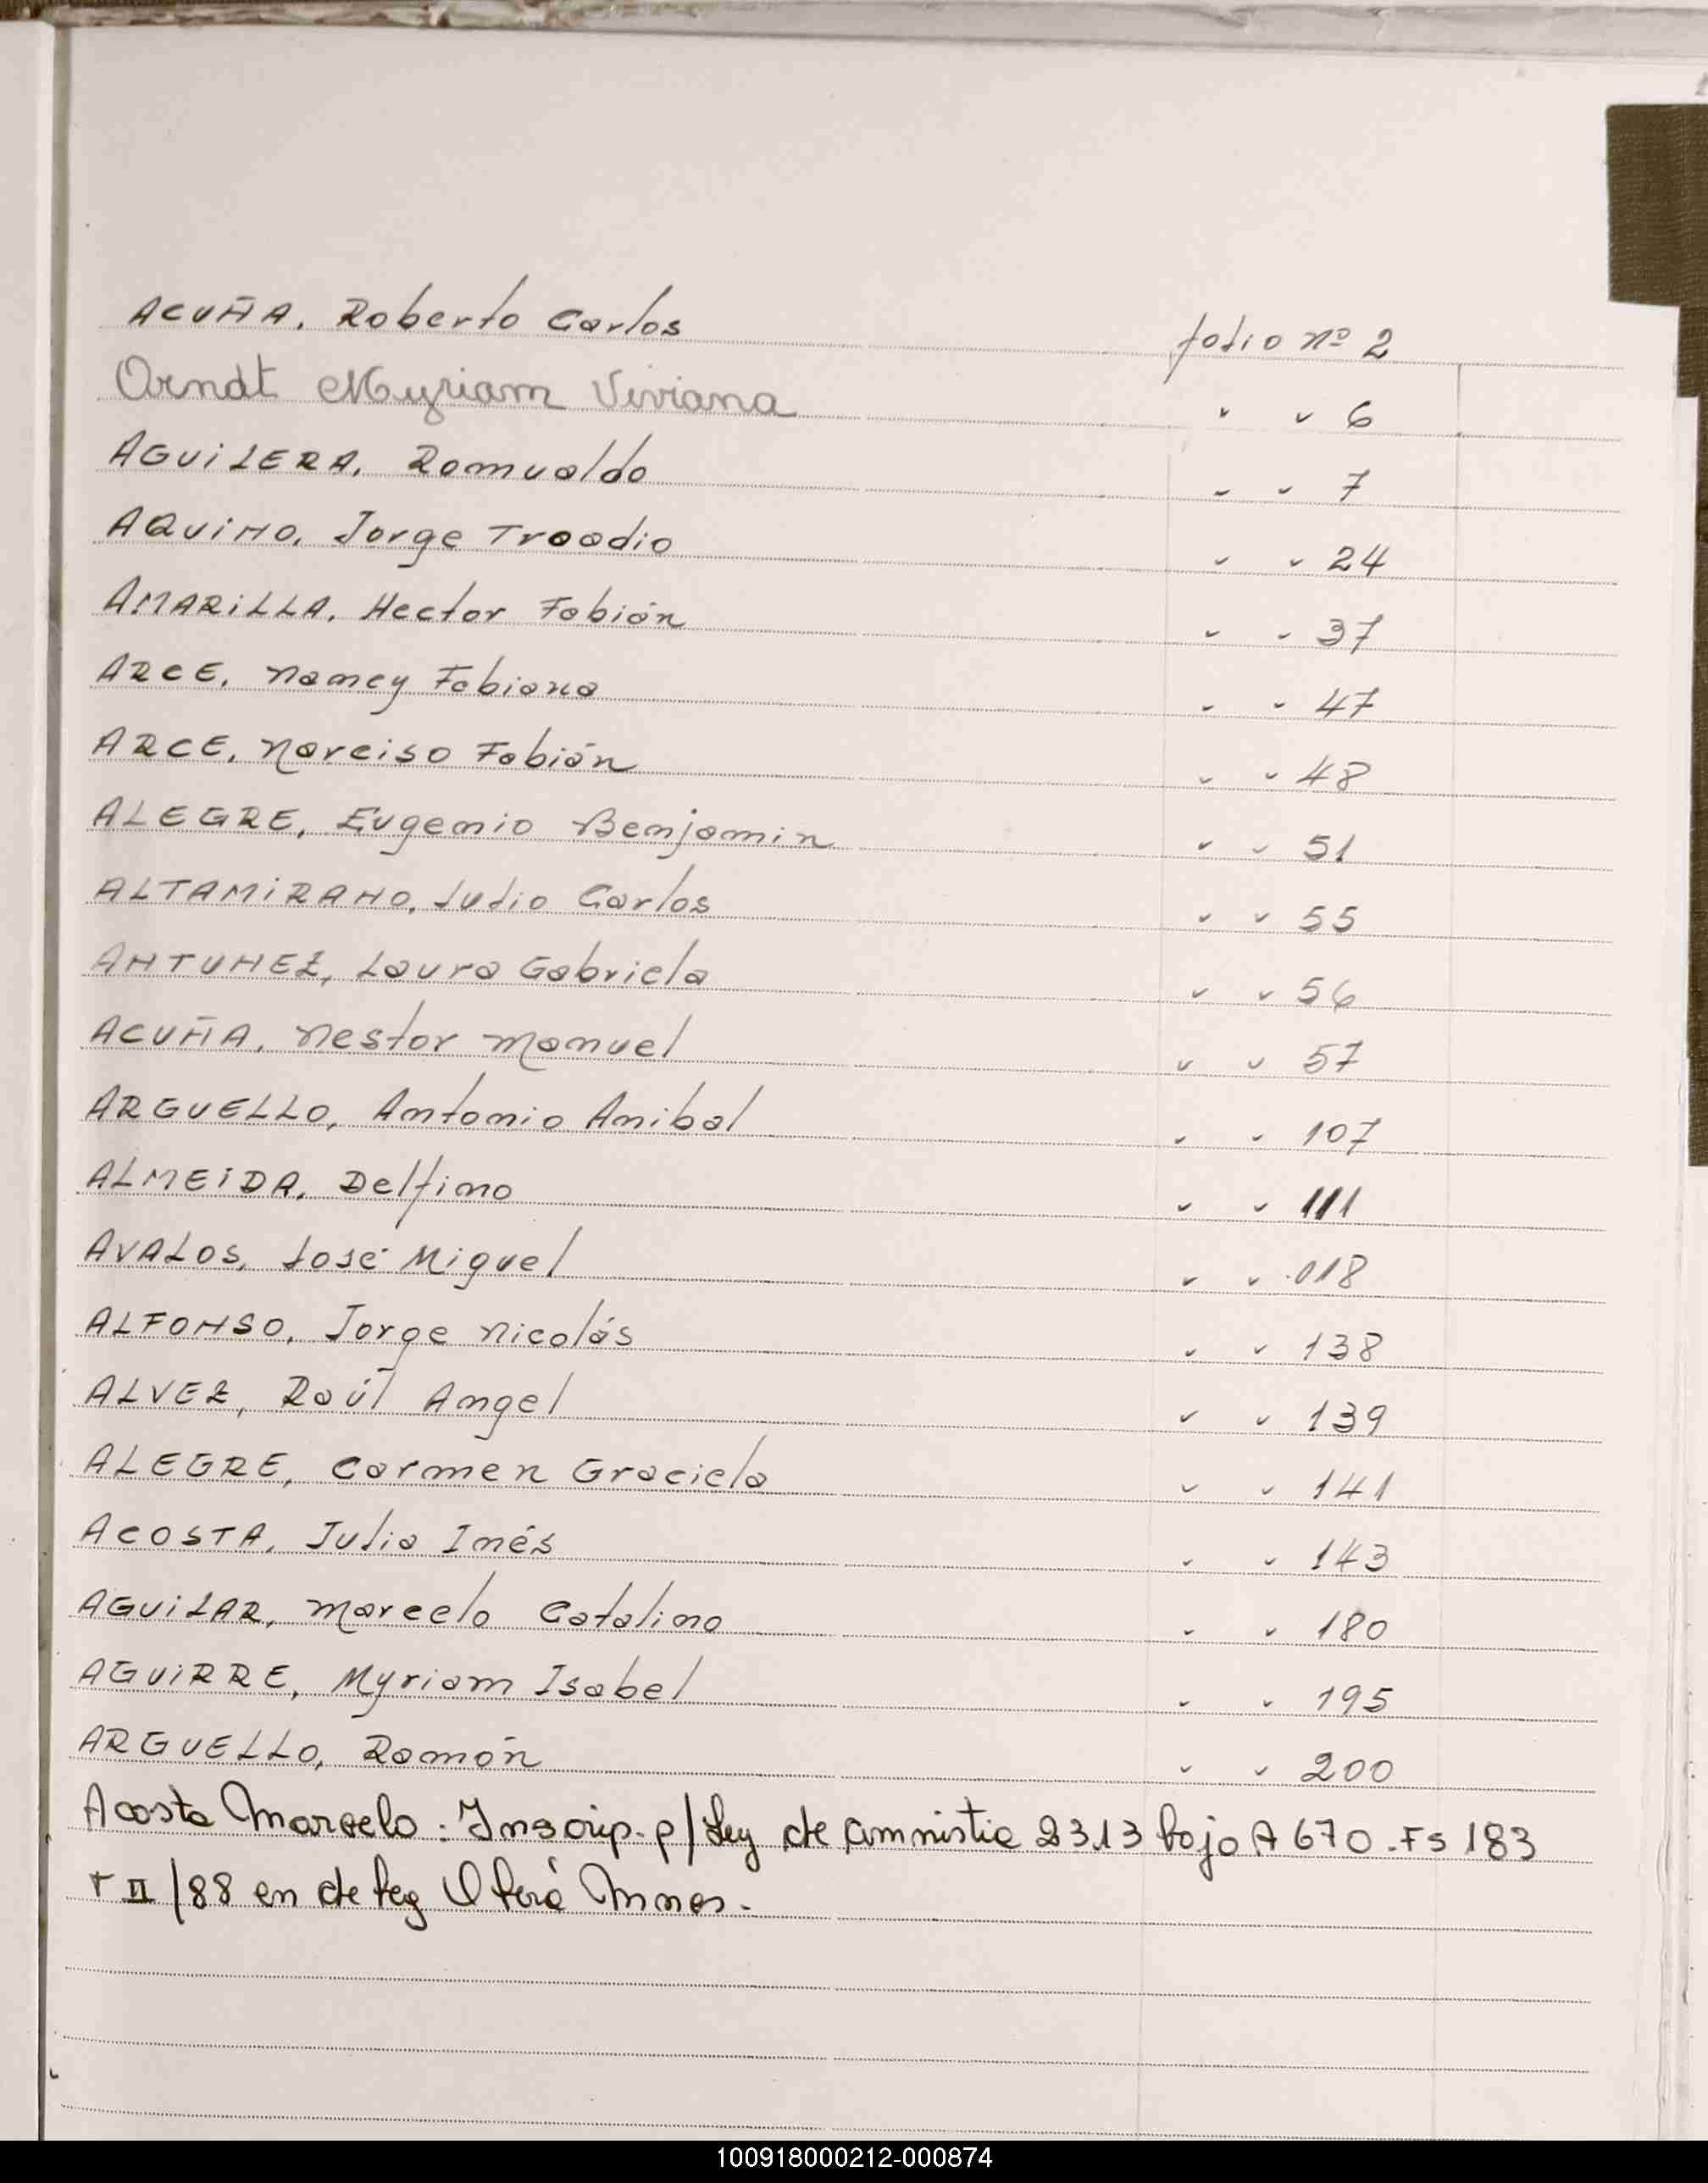 ACUÑA, Roberto Carlos folio nº 2
Arndt Myriam Viviana " " 6
AGUiLERA, Romualdo " " 7
AQUiNO, Jorge Troadio " " 24
AMARiLLA, Hector Fabián " " 37
ARCE, Nancy Fabiana " " 47
ARCE, Narciso Fabián " " 48
ALEGRE, Eugenio Benjamin " " 51
ALTAMiRANO, Julio Carlos " " 55
ANTUNEZ, Laura Gabriela " " 56
ACUÑA, Nestor Manuel " " 57
ARGUELLO, Antonio Anibal " " 107
ALMEiDA, Delfino " " 111
AVALOS, José Miguel " " 018
ALFONSO, Jorge Nicolás " " 138
ALVEZ, Raúl Angel " " 139
ALEGRE, Carmen Graciela " " 141
ACOSTA, Julia Inés " " 143
AGUiLAR, Marcelo Catalino " " 180
AGUiRRE, Myriam Isabel " " 195
ARGUELLO, Ramón " " 200
Acosta Marcelo: Inscrip. p/ Ley de amnistia 2313 bajo A 670 . Fs 183
T II /88 en de leg Oberá Mnes.
100918000212-000874